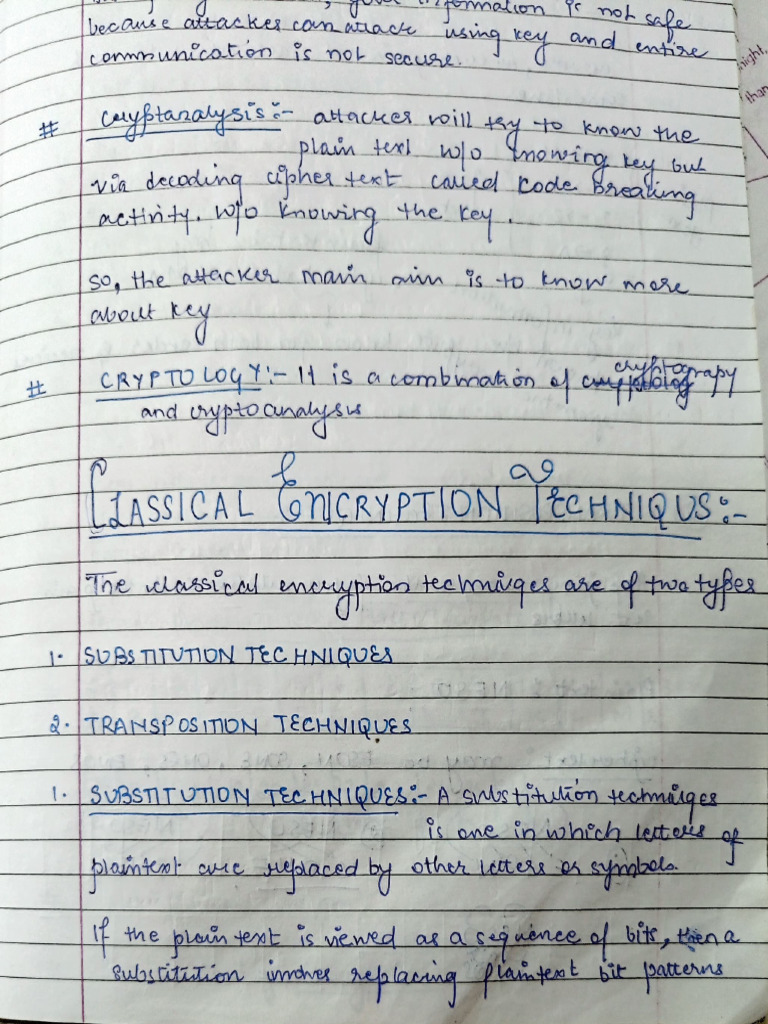 information is not safe
because attacker can attack using key and entire
communication is not secure.
# cryptanalysis:- attacker will try to know the
plain text w/o knowing key but
via decoding cipher text called code breaking
activity. w/o knowing the key.
so, the attacker main aim is to know more
about key
# CRYPTOLOGY:- It is a combination of cryptograpy
and cryptoanalysis
CLASSICAL ENCRYPTION TECHNIQUS:-
The classical encryption techniuqes are of two types
1. SUBSTITUTION TECHNIQUES
2. TRANSPOSITION TECHNIQUES
1. SUBSTITUTION TECHNIQUES:- A substitution techniuqes
is one in which letters of
plaintext are replaced by other letters or symbols.
If the plain text is viewed as a sequence of bits, then a
substitution involves replacing plaintext bit patterns